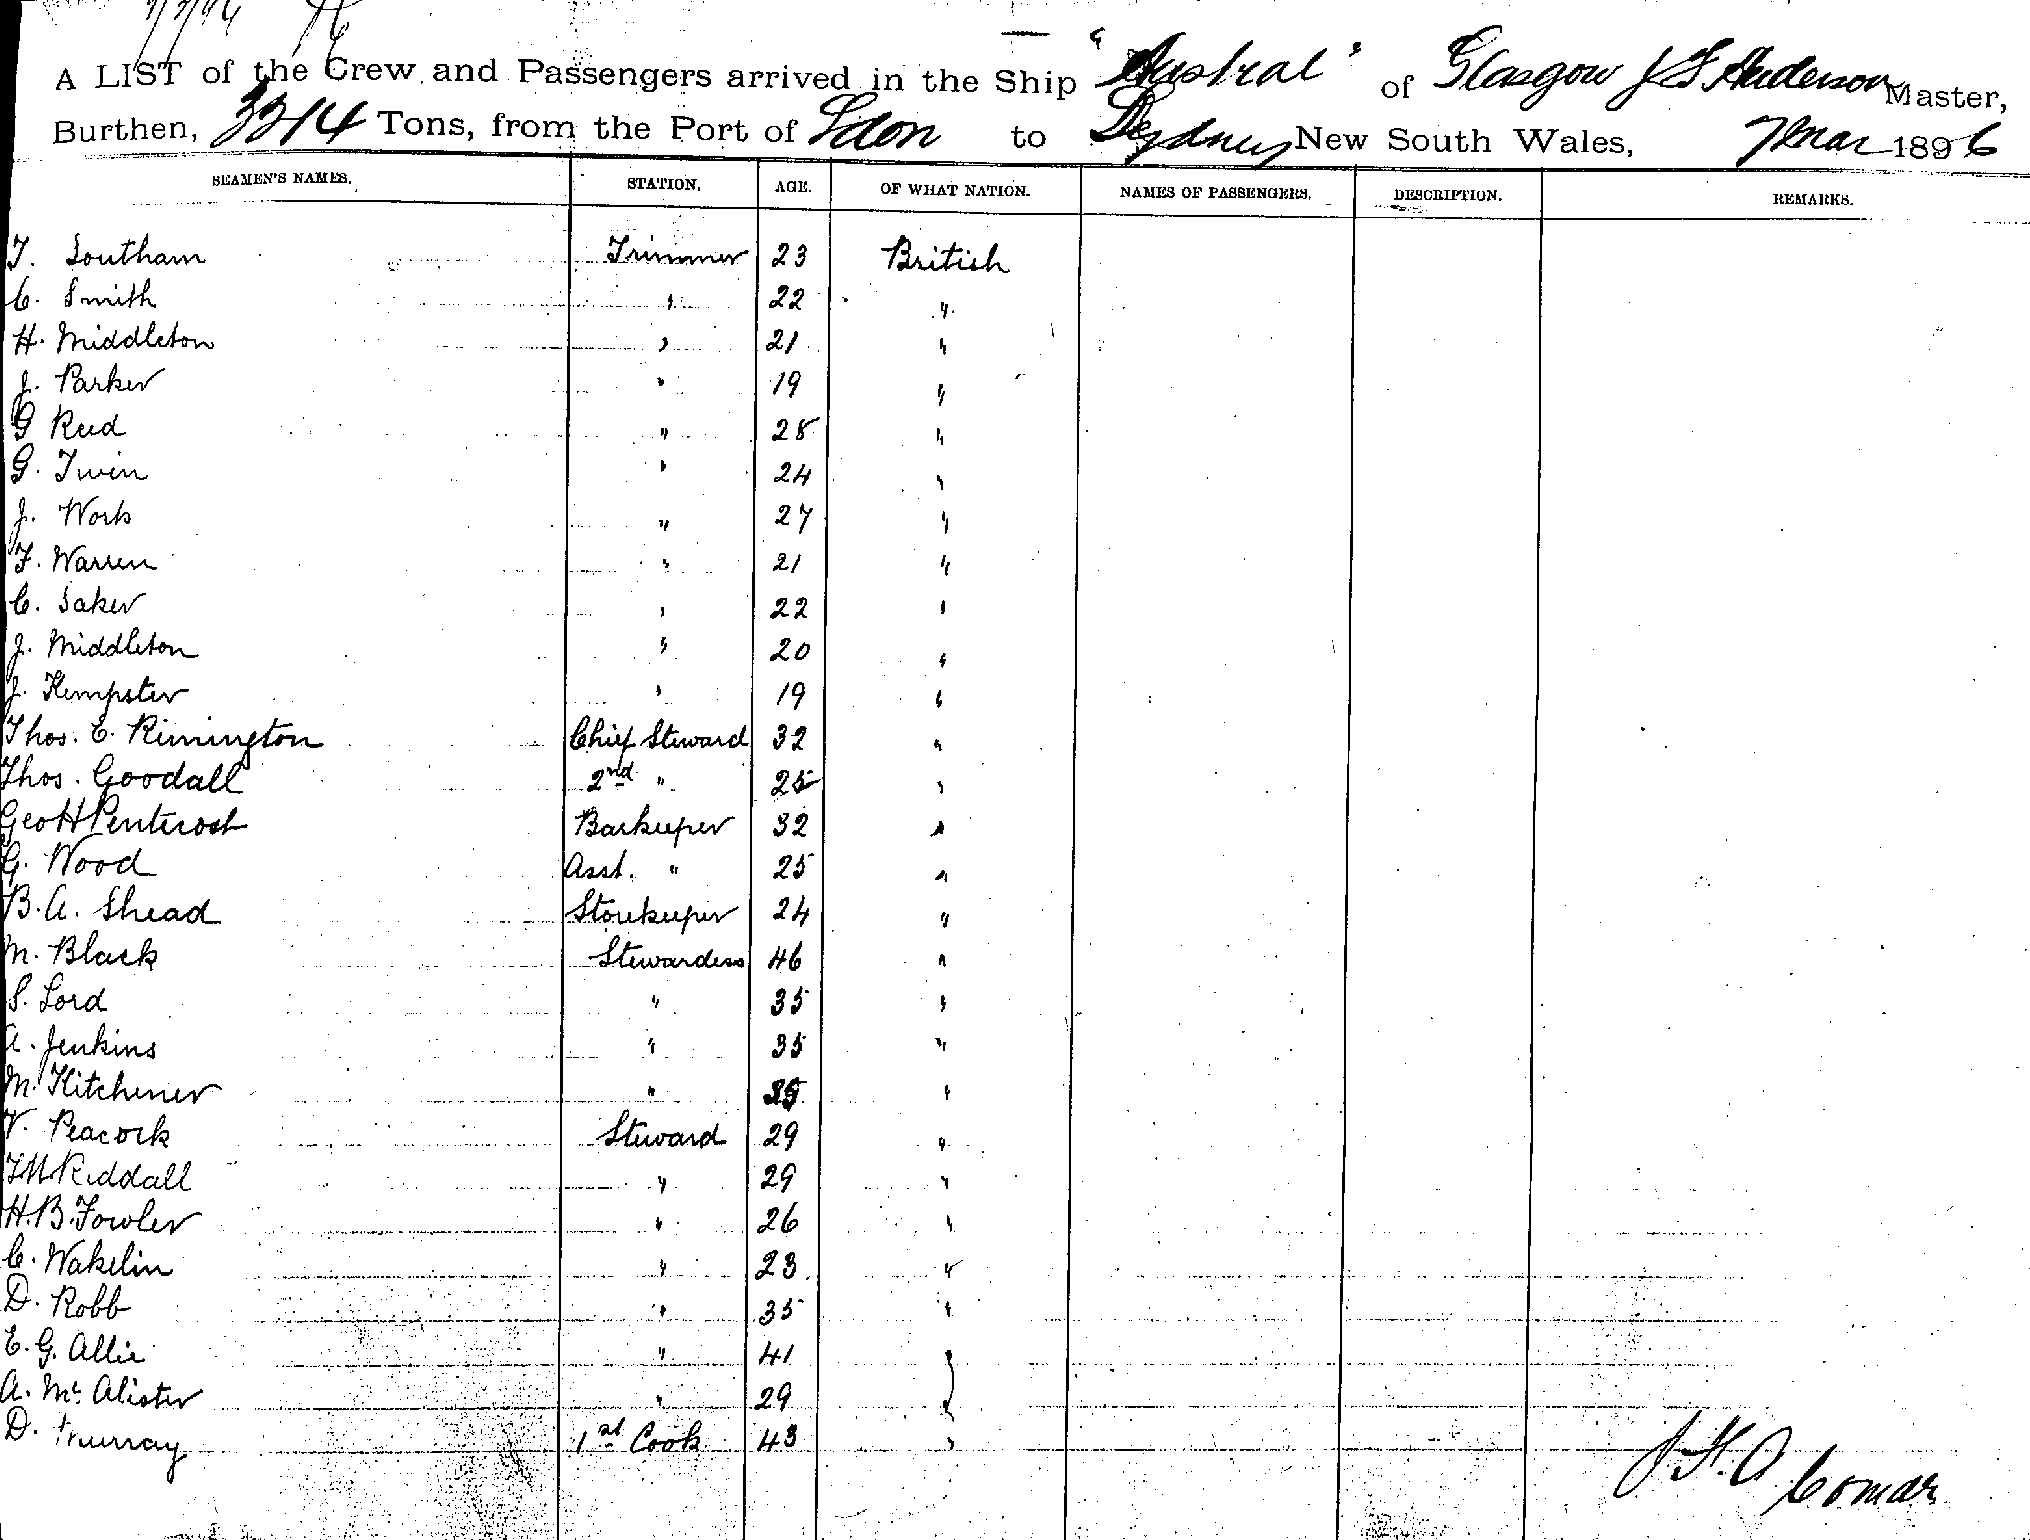 7/3/96
A LIST of the Crew and Passengers arrived in the Ship "Austral" of Glasgow J F Anderson Master,
Burthen, 3214 Tons, from the Port of Ldon to Sydney New South Wales, 7 Mar 1896
SEAMEN'S NAMES. STATION. AGE. OF WHAT NATION. NAMES OF PASSENGERS. DESCRIPTION. REMARKS.
T. Southam Trimmer 23 British
C. Smith " 22 "
H. Middleton " 21 "
J. Parker " 19 "
G Reed " 28 "
G. Twin " 24 "
J. Work " 27 "
F. Warren " 21 "
C. Saker " 22 "
J. Middleton " 20 "
J. Kempster " 19 "
Thos. E. Rimington Chief Steward 32 "
Thos. Goodall 2nd " 25 "
Geo H Pentecost Barkeeper 32 "
G. Wood Asst. " 25 "
B. A. Shead Storekeeper 24 "
M. Black Stewardess 46 "
S. Lord " 35 "
A. Jenkins " 35 "
M. Kitchener " "
V. Peacock Steward 29 "
Riddall " 29 "
H. B. Fowler " 26 "
C. Wakelin " 23 "
D. Robb " 35 "
E. G. Allie " 41 "
A. Mc Alister " 29 "
D. Murray 1st Cook 43 "
Comdr